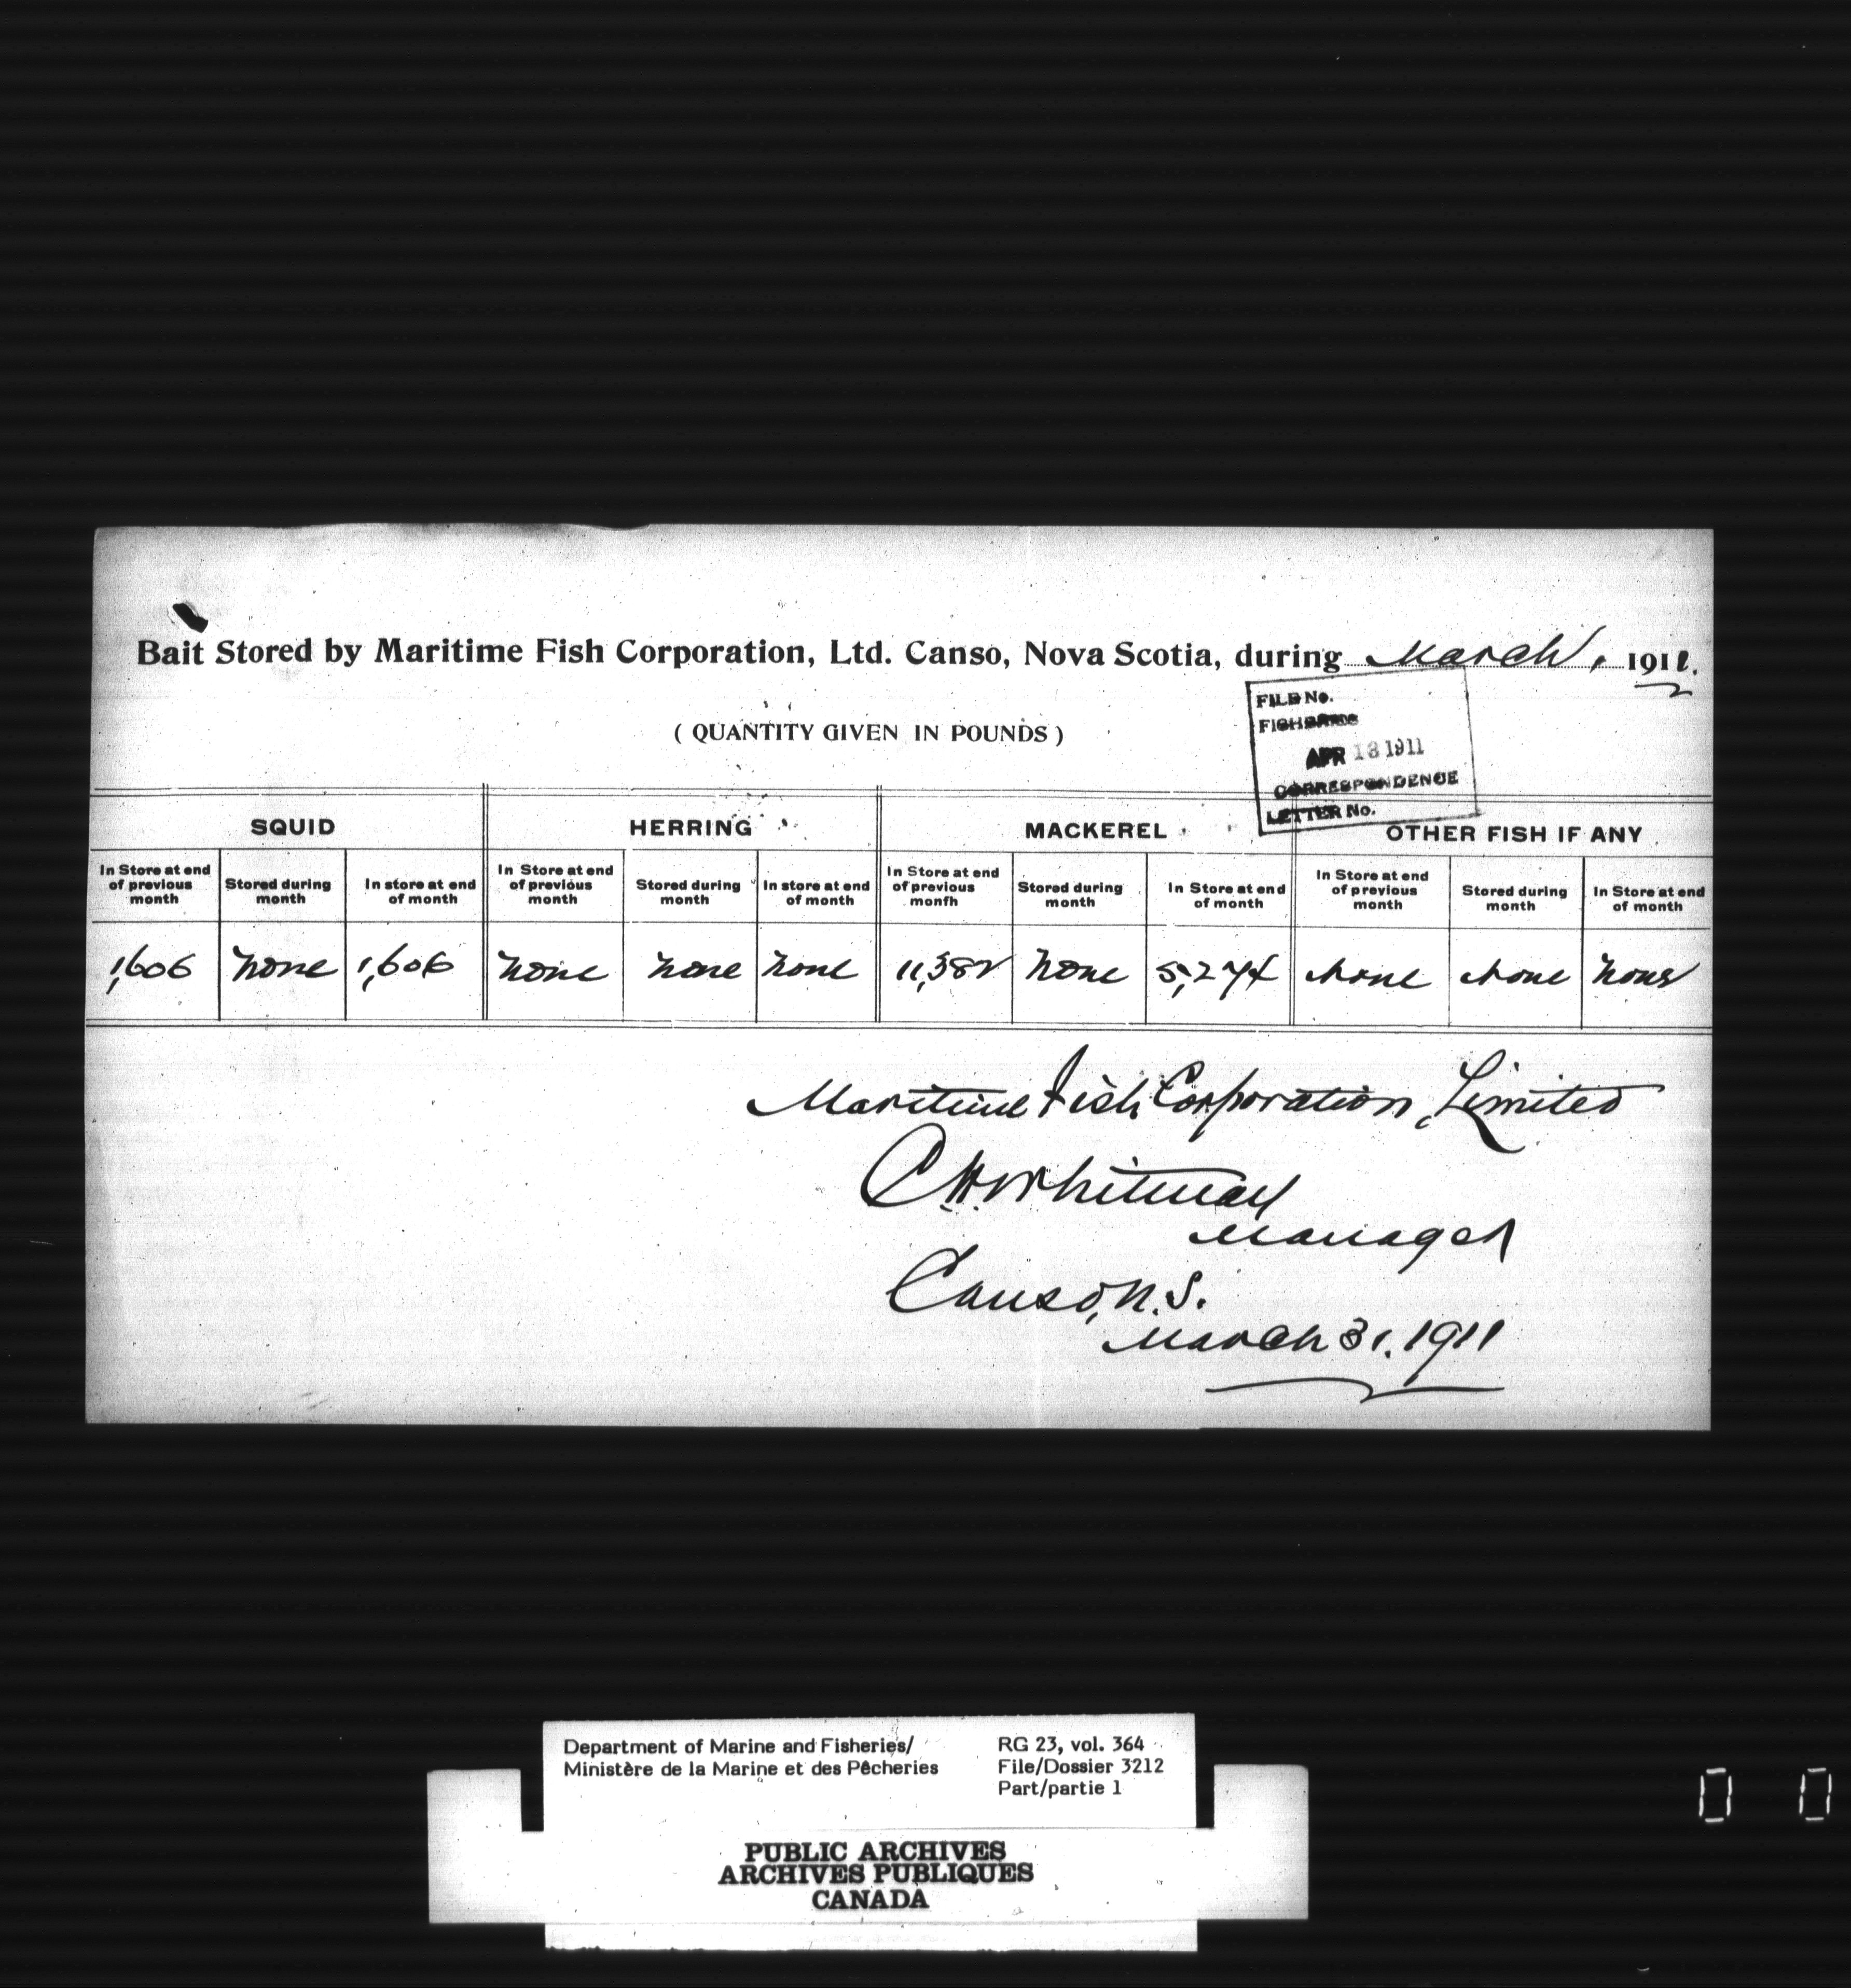 Bait Stored by Maritime Fish Corporation, Ltd. Canso, Nova Scotia, during March, 1911.
( QUANTITY GIVEN IN POUNDS )
FILE No.
FISHERIES
APR 13 1911
CORRESPONDENCE
LETTER No.
SQUID HERRING MACKEREL OTHER FISH IF ANY
In Store at end of previous month Stored during month In store at end of month In Store at end of previous month Stored during month In store at end of month In Store at end of previous monfh Stored during month In Store at end of month In Store at end of previous month Stored during month In Store at end of month
1,606 None 1,606 None None None 11,382 None 5,274 None None None
Maritime Fish Corporation, Limited
C.H. Whitman
Manager
Canso, N.S.
March 31. 1911
Department of Marine and Fisheries/ RG 23, vol. 364
Ministère de la Marine et des Pêcheries File/Dossier 3212
Part/partie 1
PUBLIC ARCHIVES
ARCHIVES PUBLIQUES
CANADA
0 0